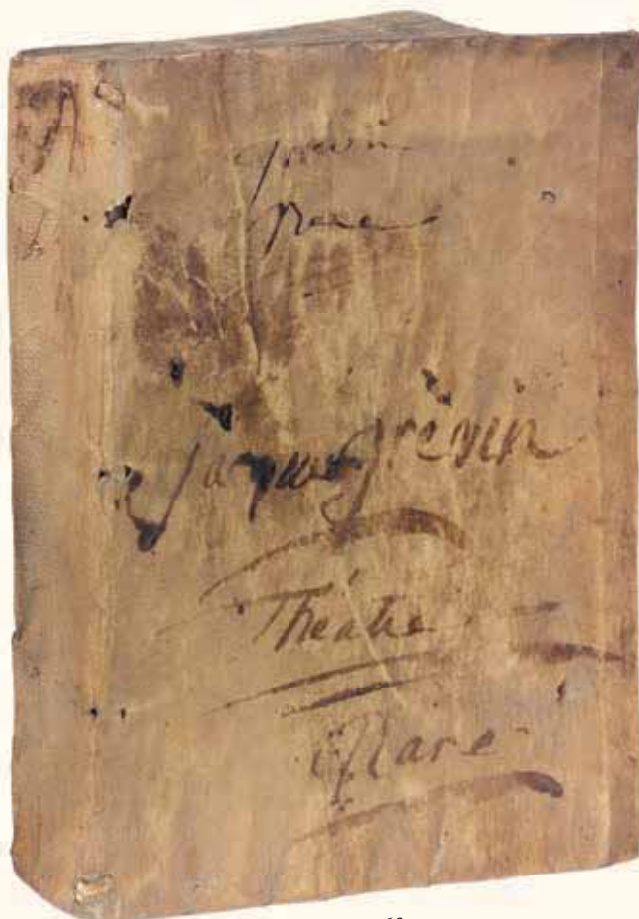 Grevin
Rare
Jacques Grévin
Théatre
Rare